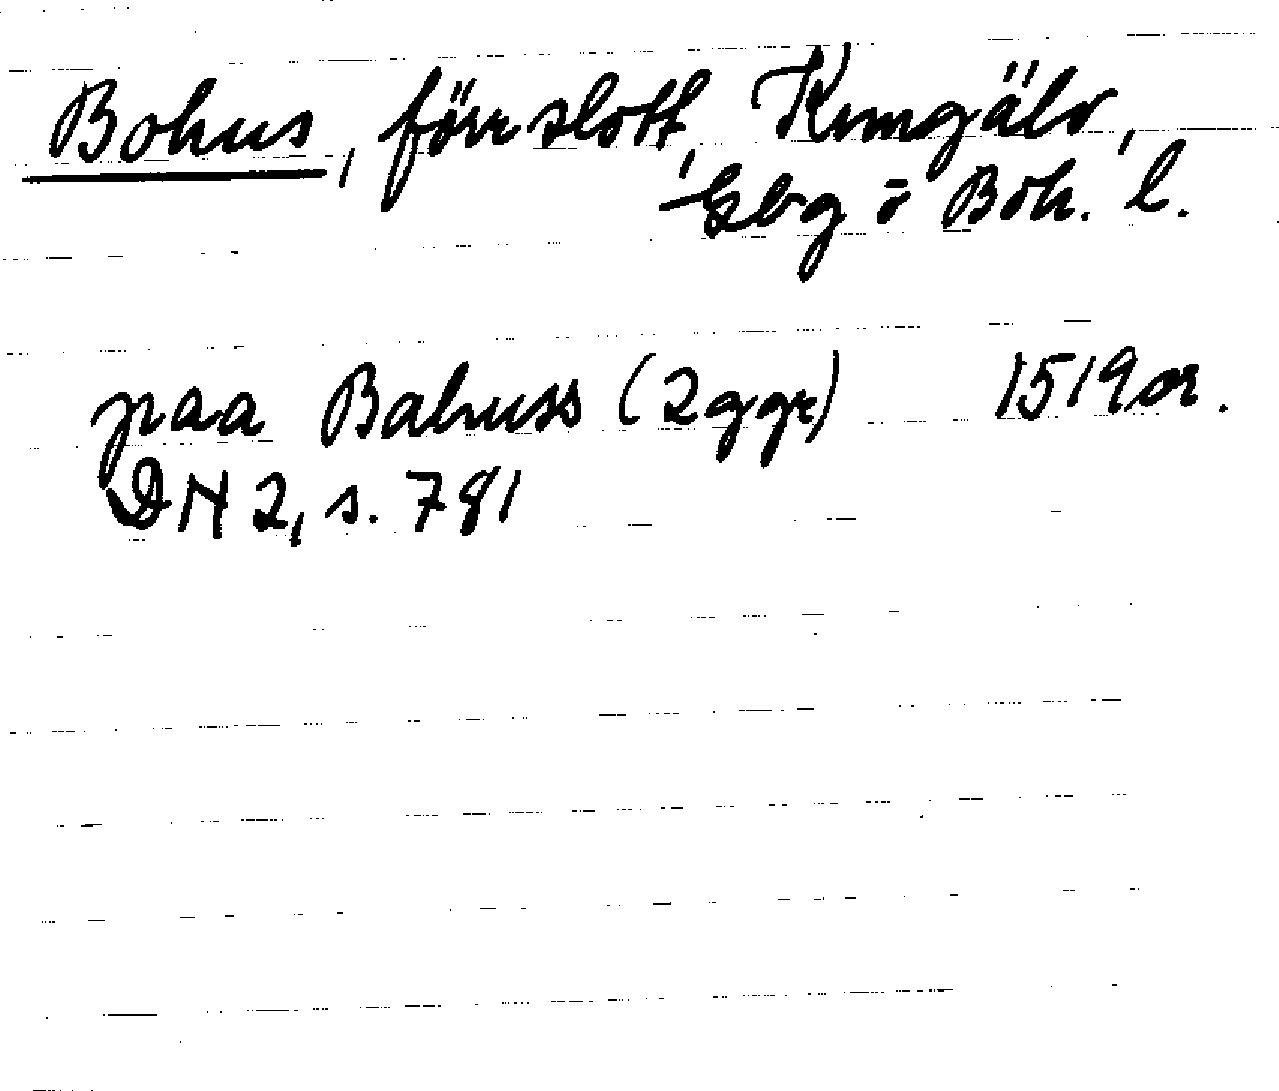 Bohus, förr slott, Kungälv,
Gbg o Boh. l.
paa Bahuss (2 ggr) 1519 or.
DN 2, s. 781